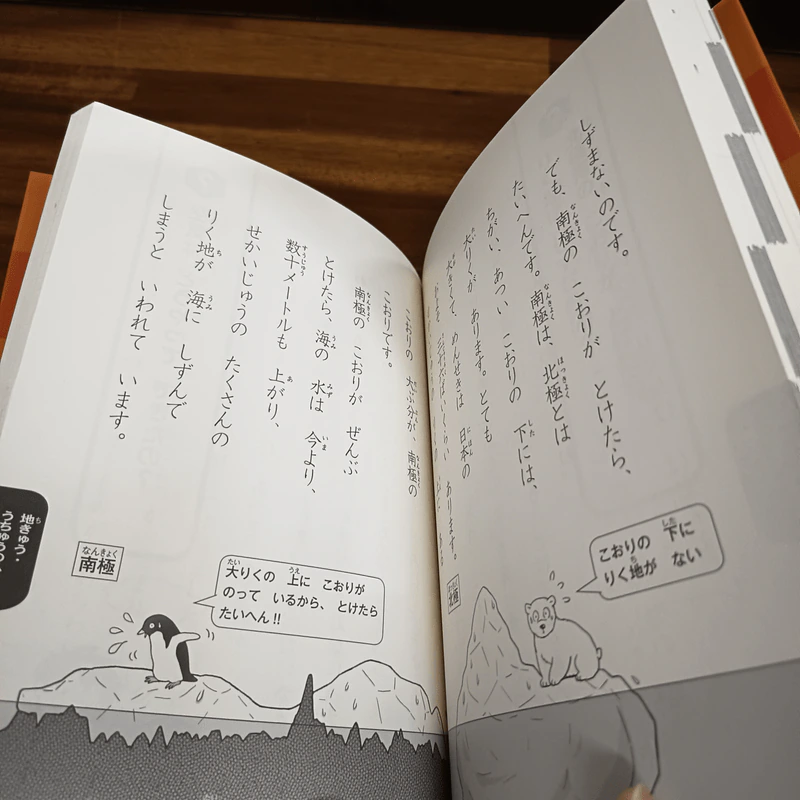 しずまないのです。
でも、南極の こおりが とけたら、
たいへんです。南極は、北極とは
ちがい、あつい こおりの 下には、
大りくが あります。とても
大きくて、めんせきは 日本の
あります。
こおりの 下に
りく地が ない
北極
こおりの 大ぶ分が、南極の
こおりです。
南極の こおりが ぜんぶ
とけたら、海の 水は 今より、
数十メートルも 上がり、
せかいじゅうの たくさんの
りく地が 海に しずんで
しまうと いわれて います。
大りくの 上に こおりが
のって いるから、とけたら
たいへん!!
南極
地きゅう・
うちゅうの、